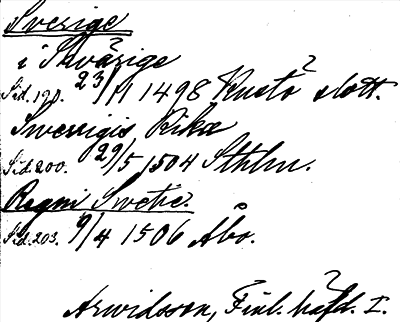 Sverige
i Swärige
Sid. 198. 23/11 1498 Kustö slott.
Swerrigis Rike
Sid. 200. 29/5 1504 Sthlm.
Regni Swetie.
Sid. 203. 9/4 1506 Åbo.
Arwidsson, Finl. häfd. I.